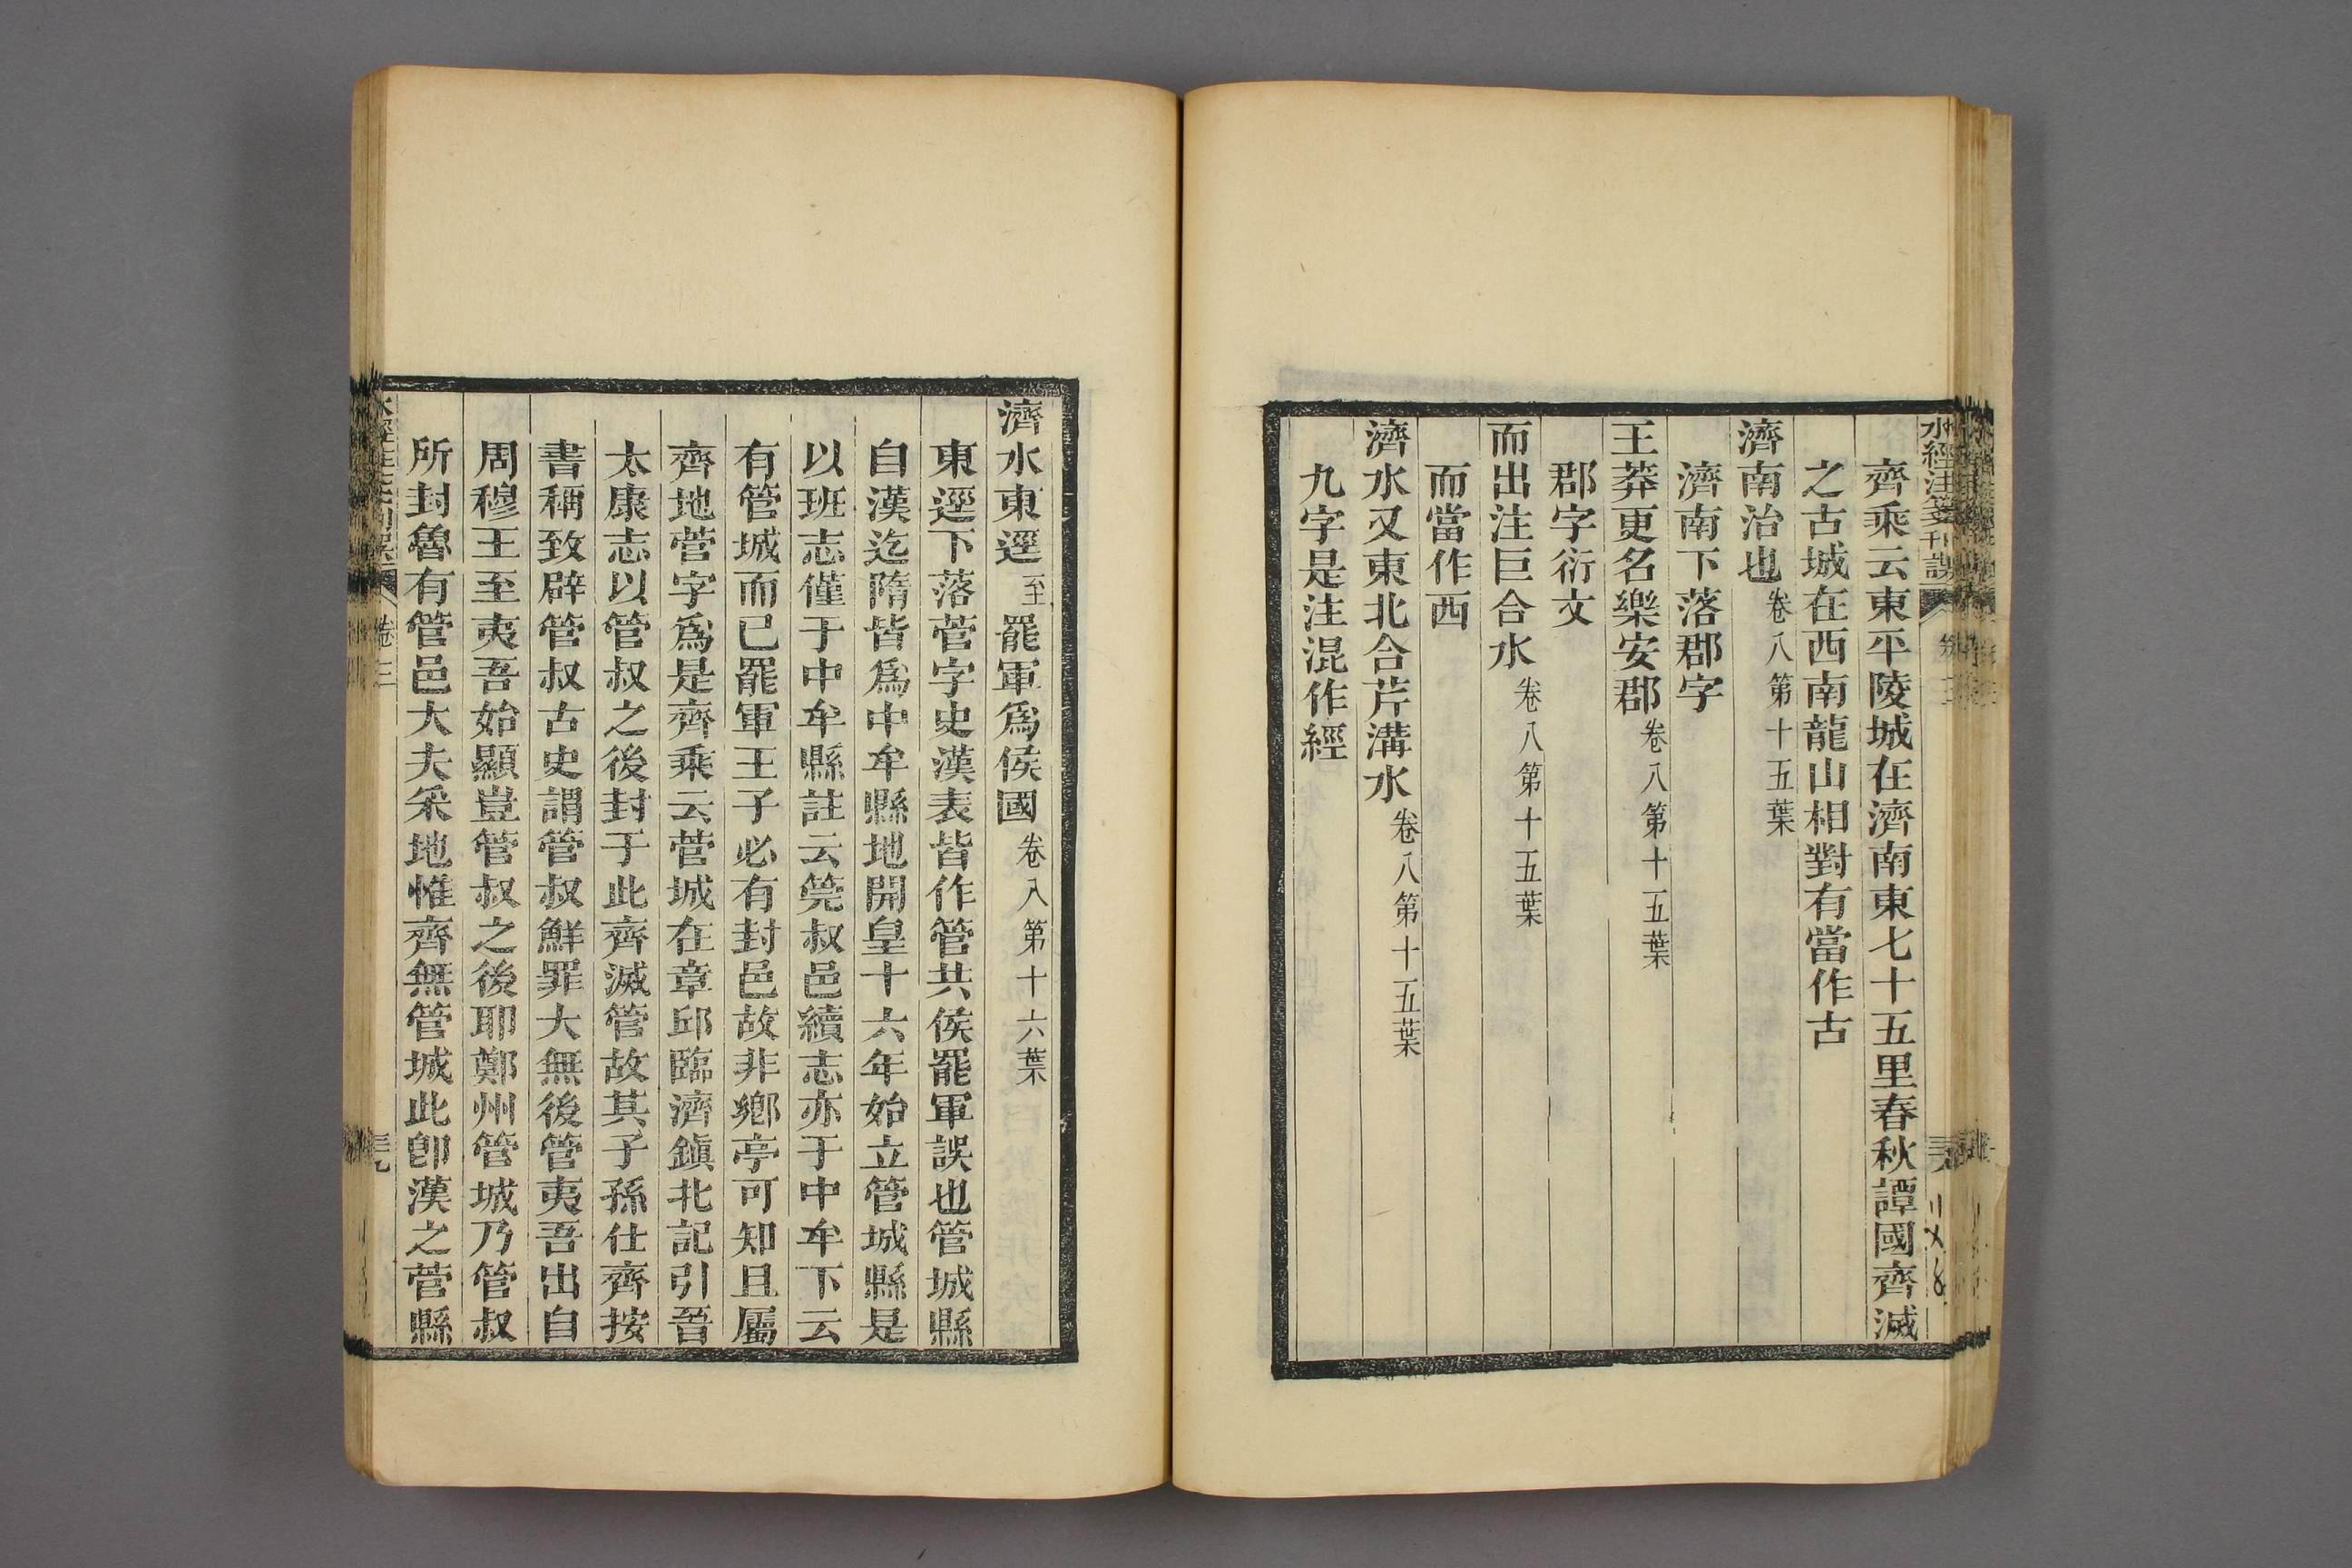 水經注箋刊誤
齊乘云東平陵城在濟南東七十五里春秋譚國齊滅
之古城在西南龍山相對有當作古
濟南治也卷八第十五葉
濟南下落郡字
王莽更名樂安郡卷八第十五葉
郡字衍文
而出注巨合水卷八第十五葉
而當作西
濟水又東北合芹溝水卷八第十五葉
九字是注混作經
濟水東逕至罷軍爲侯國卷八第十六葉
東逕下落菅字史漢表皆作管共侯罷軍誤也管城縣
自漢迄隋皆爲中牟縣地開皇十六年始立管城縣是
以班志僅于中牟縣註云筦叔邑續志亦于中牟下云
有管城而已罷軍王子必有封邑故非鄉亭可知且屬
齊地菅字爲是齊乘云菅城在章邱臨濟鎭北記引晉
太康志以管叔之後封于此齊滅管故其子孫仕齊按
書稱致辟管叔古史謂管叔鮮罪大無後管夷吾出自
周穆王至夷吾始顯豈管叔之後耶鄭州管城乃管叔
所封魯有管邑大夫采地惟齊無管城此卽漢之菅縣
卷三